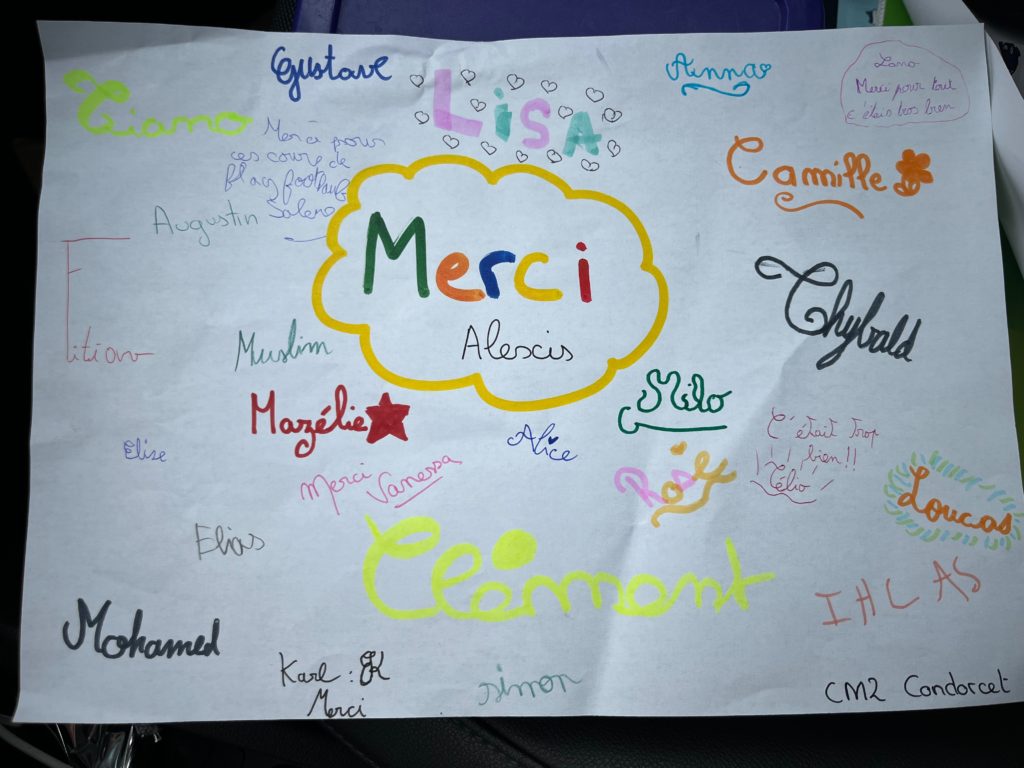 Gustave
Lisa
Ainna
Lana
Merci pour tout
c'étais tros bien
Tiano
Merci pour
ces cours de
flag football
Salena
Augustin
Camille
Merci
Alexis
Thybald
Muslim
Mazélie
Milo
Elise
Alice
C'était trop
bien!!
Célio
Merci Vanessa
Rosy
Loucas
Elias
Clément
IHLAS
Mohamed
Karl : K
Merci
Simon
CM2 Condorcet